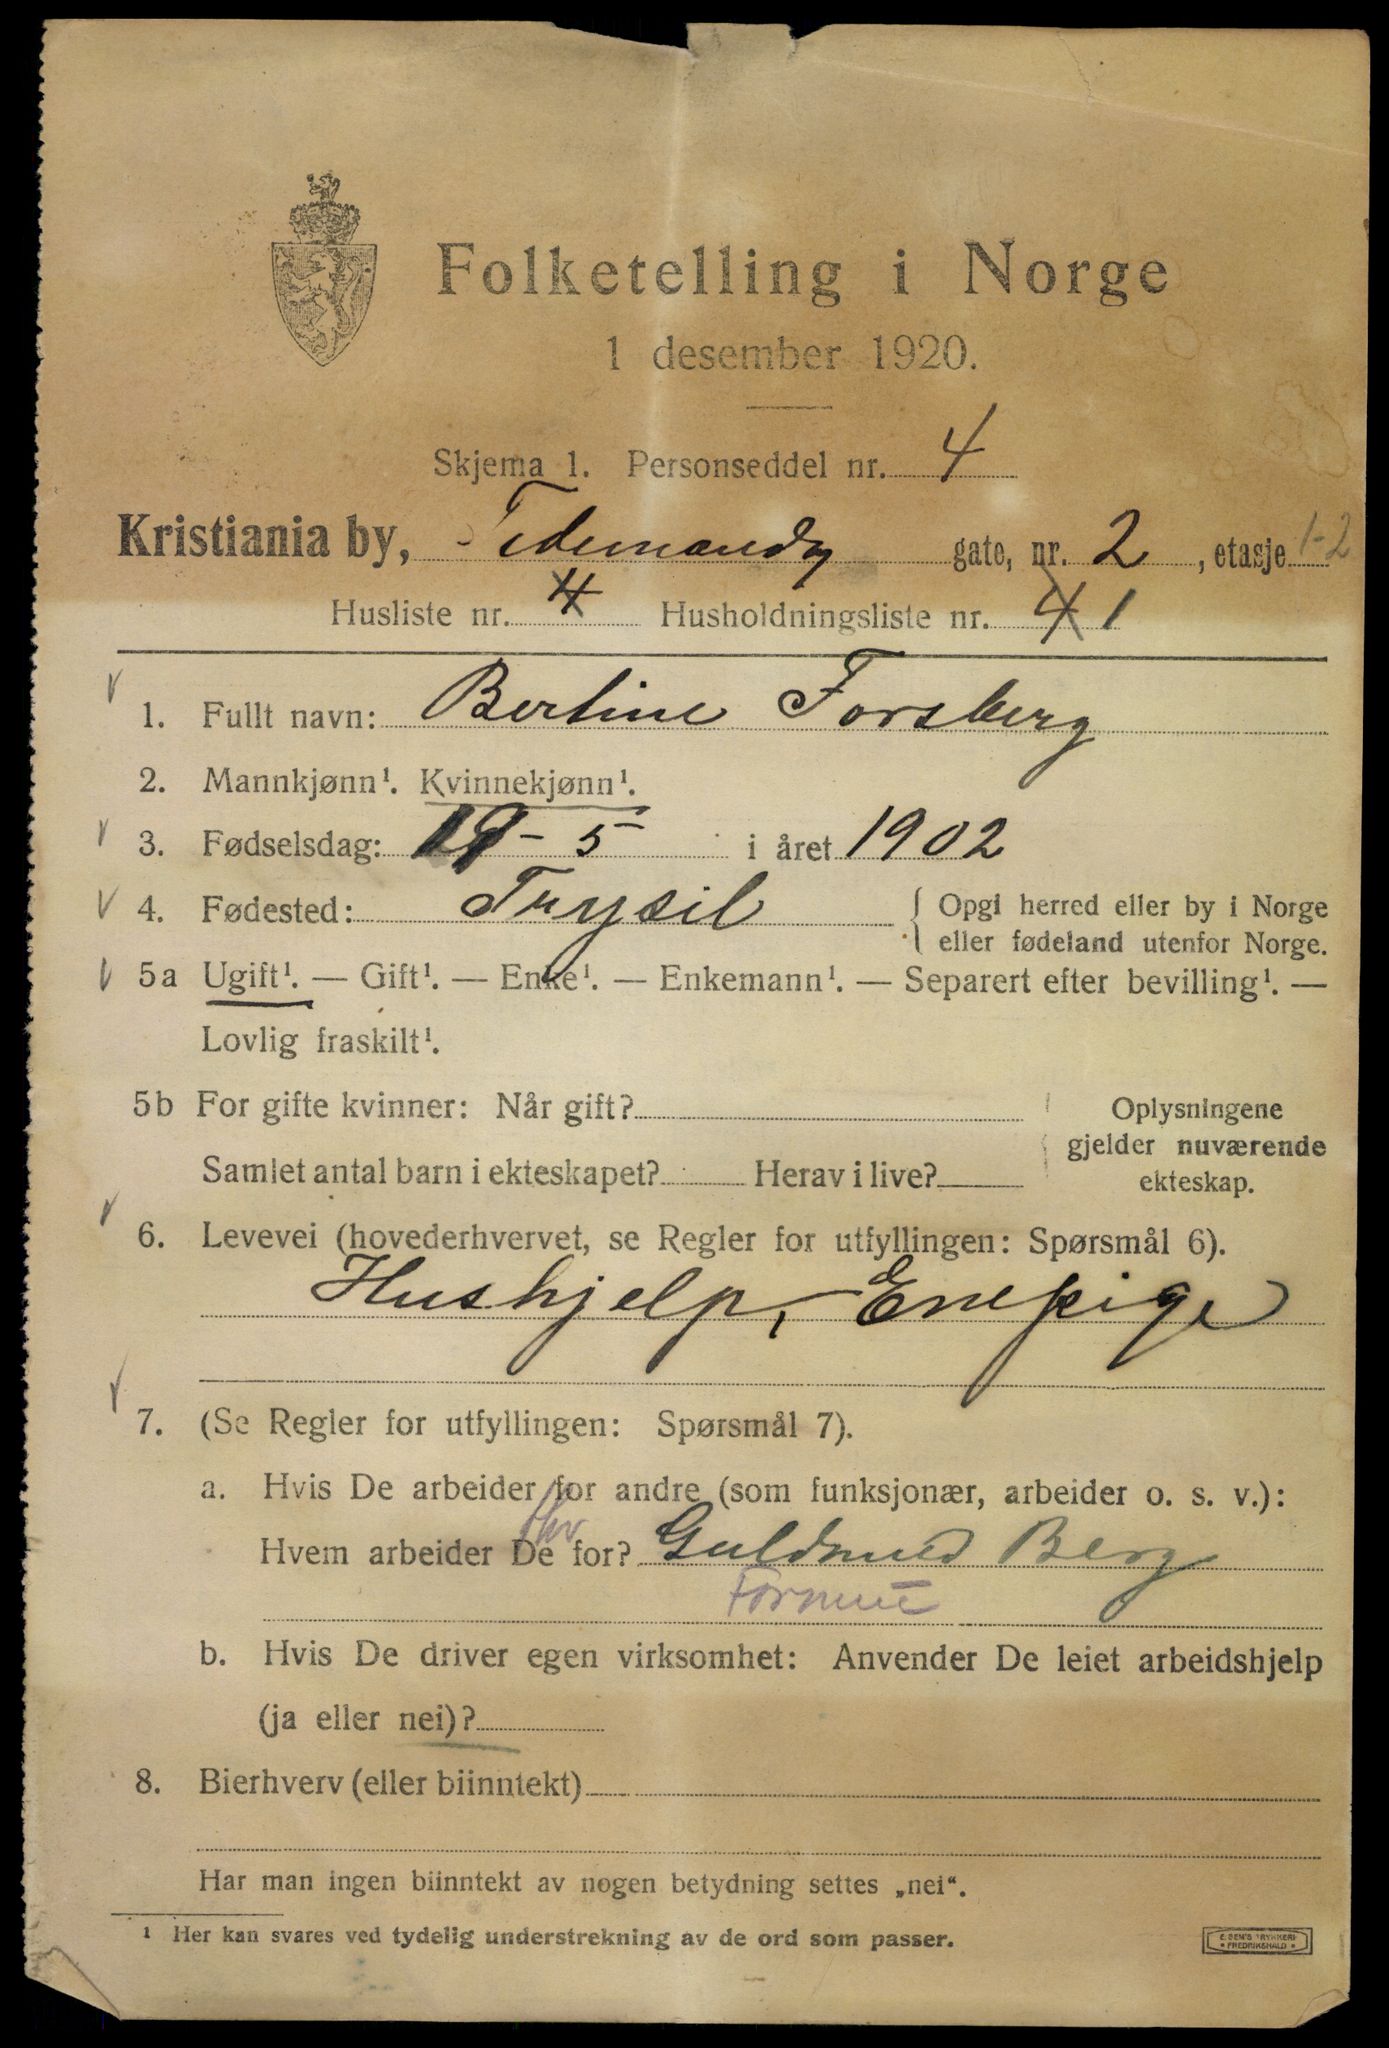 Folketelling i Norge
1 desember 1920.
Skjema 1. Personseddel nr. 4
Kristiania by, Tidemands gate, nr. 2, etasje 1-2
Husliste nr. 4 Husholdningsliste nr. 4 1
1. Fullt navn: Bertine Forsberg
2. Mannkjønn¹. Kvinnekjønn¹.
3. Fødselsdag: 19-5 i året 1902
4. Fødested: Trysil { Opgi herred eller by i Norge
eller fødeland utenfor Norge.
5a Ugift¹. — Gift¹. — Enke¹. — Enkemann¹. — Separert efter bevilling¹. —
Lovlig fraskilt¹.
5b For gifte kvinner: Når gift? Oplysningene
gjelder nuværende
Samlet antal barn i ekteskapet? Herav i live? ekteskap.
6. Levevei (hovederhvervet, se Regler for utfyllingen: Spørsmål 6).
Hushjelp, Enepige
7. (Se Regler for utfyllingen: Spørsmål 7).
a. Hvis De arbeider for andre (som funksjonær, arbeider o. s. v.):
Hvem arbeider De for? Guldmund Berg
b. Hvis De driver egen virksomhet: Anvender De leiet arbeidshjelp
(ja eller nei)?
8. Bierhverv (eller biinntekt)
Har man ingen biinntekt av nogen betydning settes „nei“.
¹ Her kan svares ved tydelig understrekning av de ord som passer.
FREDRIKSHALD